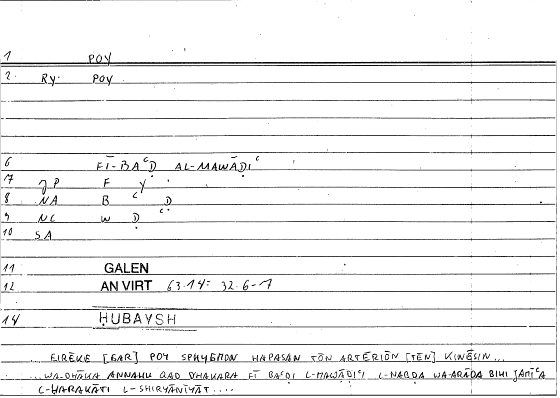 1 POY
2. Ry. POY
6 FĪ-BAʿḌ AL-MAWĀḌIʿ
7 JP F Y
8 NA B ʿ Ḍ
9 NC W Ḍ ʿ
10 SA
11 GALEN
12 AN VIRT 63.14 = 32.6-7
14 ḤUBAYSH
EIRĒKE [GAR] POY SPHYGMON HAPASAN TŌN ARTĒRIŌN [TĒN] KINĒSIN...
...WA-DHĀKA ANNAHU QAD DHAKARA FĪ BAʿḌI L-MAWĀḌIʿI L-NABḌA WA-ARĀDA BIHI JAMĪʿA
L-ḤARAKĀTI L-SHIRYĀNĪYĀT....